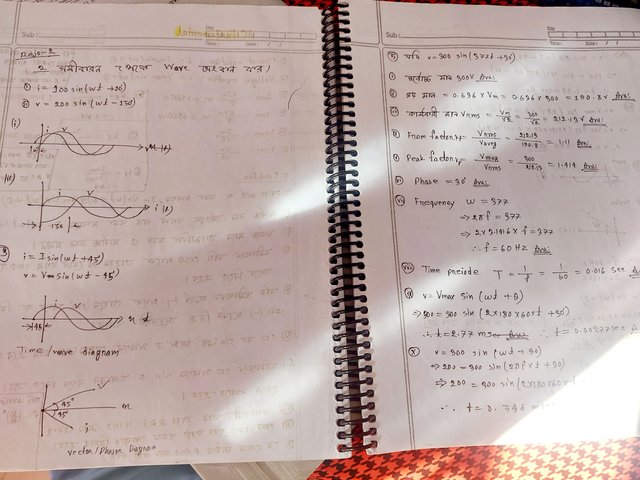 Sub :
Day
Time :
Date :
2 সমীকরণ থেকে Wave অংকন কর।
i = 100 sin (wt + 30)
v = 200 sin (wt - 130)
(i)
i
v
i
v
130
i = I sin (wt + 45)
v = Vm sin (wt - 45)
45
Time / wave diagram
v
45°
45°
i
Vector / Phasor Diagram
Sub :
Day
Time :
Date :
যদি v = 300 sin (377t + 30)
সর্বোচ্চ মান 300V Ans:
গড় মান = 0.636 x Vm = 0.636 x 300 = 190.8 v Ans:
কার্যকরী মান Vrms = Vm/√2 = 300/√2 = 212.13 v Ans:
From factor Kf = Vrms/Vavg = 212.13/190.8 = 1.11 Ans:
Peak factor Kp = Vmax/Vrms = 300/212.13 = 1.414 Ans:
Phase = 30° Ans:
Frequency w = 377
⇒ 2πf = 377
⇒ 2 x 3.1416 x f = 377
∴ f = 60 Hz Ans:
Time preiode T = 1/f = 1/60 = 0.016 sec Ans
v = Vmax sin (wt + θ)
⇒ 300 = 300 sin (2 x 180 x 60 x t + 30)
∴ t = 2.77 msec Ans: ∴ t = 0.00277 sec A
v = 300 sin (wt + 30)
⇒ 200 = 300 sin (2πft + 30)
⇒ 200 = 300 sin (2 x 180 x 60 x t
∴ t = 0.546 m